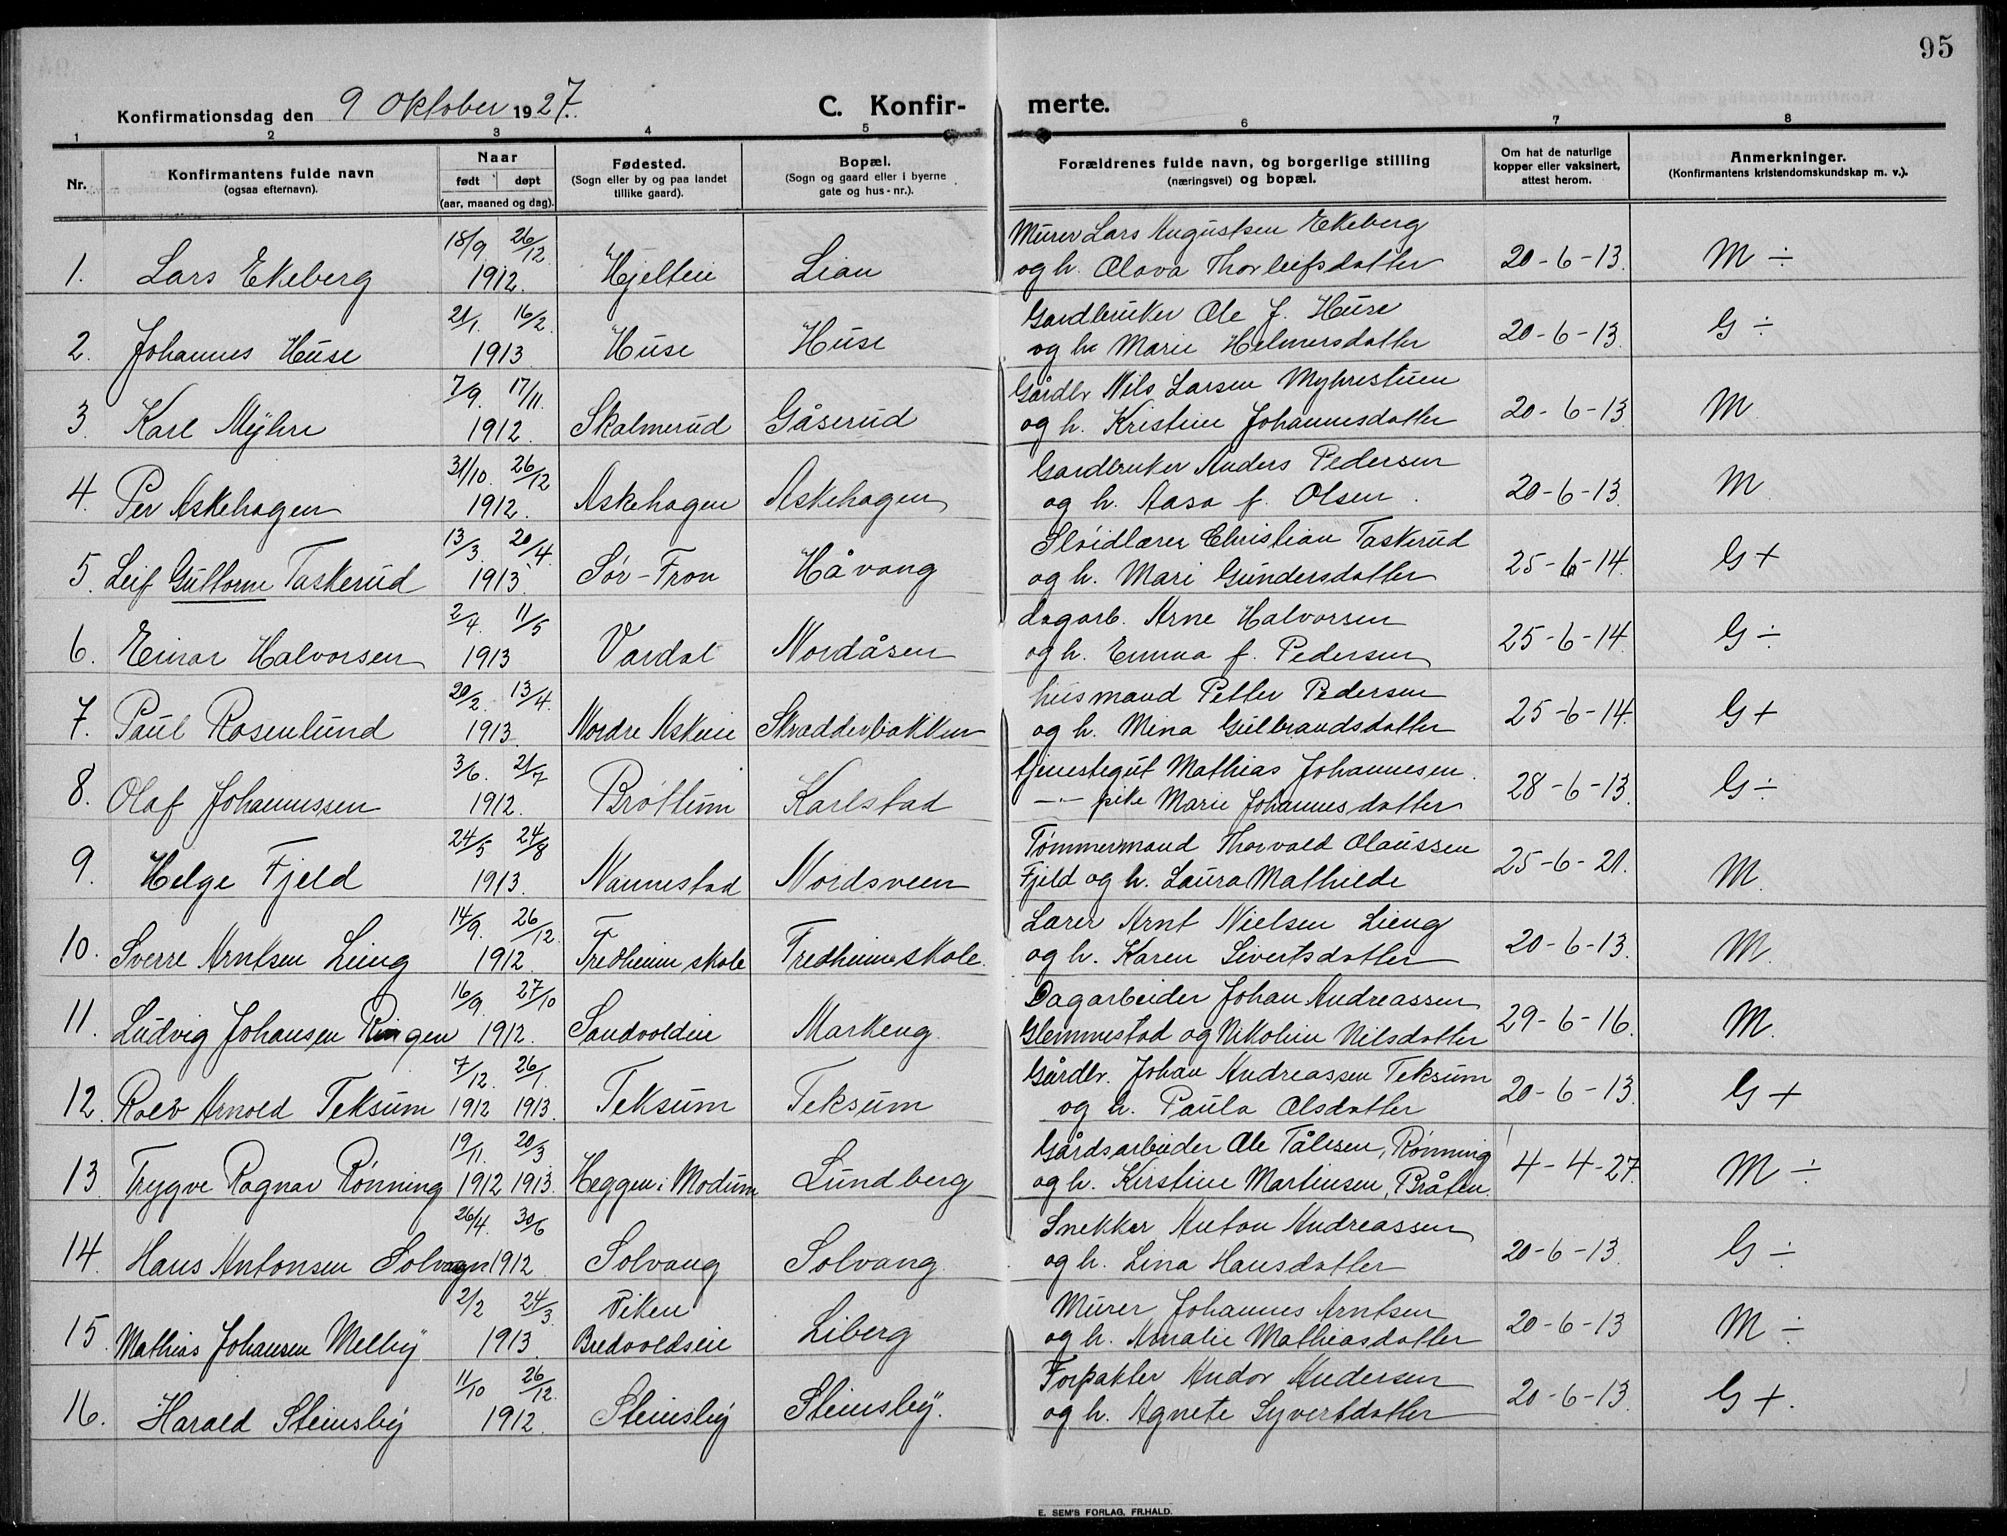 95
Konfirmationsdag den 9 Oktober 1927.
C. Konfirmerte.
1 2 3 4 5 6 7 8
Nr.
Konfirmantens fulde navn
(ogsaa efternavn).
Naar
født døpt
(aar, maaned og dag).
Fødested.
(Sogn eller by og paa landet
tillike gaard).
Bopæl.
(Sogn og gaard eller i byerne
gate og hus-nr.).
Forældrenes fulde navn, og borgerlige stilling
(næringsvei) og bopæl.
Om hat de naturlige
kopper eller vaksinert,
attest herom.
Anmerkninger.
(Konfirmantens kristendomskundskap m. v.).
18/9 26/12 Murer Lars Augustsen Ekeberg
1. Lars Ekeberg 1912. Hjelteie Lian og h. Olava Thorleifsdatter 20-6-13. M ÷
21/1. 16/2. Gardbruker Ole J. Huse
2. Johannes Huse 1913 Huse Huse og h. Marie Helmersdatter 20-6-13. G ÷
7/9. 17/11. Gårdbr Nils Larsen Myhrestuen
3. Karl Myhre 1912. Skalmerud Gåserud og h. Kristine Johannesdatter 20-6-13. M
31/10. 26/12 Gardbruker Anders Pedersen
4. Per Askehagen 1912. Askehagen Askehagen og h. Aasa f. Olsen. 20-6-13. M
13/3. 20/4. Sløidlærer Christian Taskerud
5. Leif Guttorm Taskerud 1913. Sør-Fron Håvang og h. Mari Gundersdatter 25-6-14. G +
2/4. 11/5 dagarb. Arne Halvorsen
6. Einar Halvorsen 1913 Vardal Nordåsen og h. Emma f. Pedersen 25-6-14. G ÷
20/2. 13/4. husmand Petter Pedersen
7. Paul Rosenlund 1913. Nordre Askeie Skrædderbakken og h. Mina Gulbrandsdatter 25-6-14. G +
3/6. 21/7 tjenestegut Mathias Johannesen.
8. Olaf Johannessen 1912. Brøttum Karlstad —"— pike Marie Johannesdatter 28-6-13. G ÷
24/5 24/8 Tømmermand Thorvald Olaussen
9. Helge Fjeld 1913. Nannestad Nordsveen Fjeld og h. Laura Mathilde 25-6-21. M.
14/9. 26/12. Lærer Arnt Nielsen Lieng
10. Sverre Arntsen Lieng 1912 Fredheim skole Fredheim skole. og h. Karen Sivertsdatter 20-6-13. M.
16/9. 27/10 Dagarbeider Johan Andreassen
11. Ludvig Johansen Ringen 1912. Sandvoldeie Markeng Glemmestad og Nikoline Nilsdatter 29-6-16. M.
7/12. 26/1. Gårdbr. Johan Andreassen Teksum
12. Rolv Arnold Teksum 1912 1913. Teksum Teksum og h. Paula Olsdatter 20-6-13. G +
19/11. 20/3 Gårdsarbeider Ole Tålesen, Rønning
13. Trygve Ragnar Rønning 1912 1913. Heggen i Modum Lundberg og h. Kirstine Martinsen, Bråten. 4-4-27. M ÷
26/4. 30/6 Snekker Anton Andreassen
14. Hans Antonsen Solvagn 1912 Solvang Solvang. og h. Lina Hansdatter 20-6-13. G ÷
2/2 24/3. Viken Murer Johannes Arntsen
15. Mathias Johansen Melby 1913. Bredvoldseie Liberg og h. Amalie Mathiasdatter 20-6-13 M ÷
11/10 26/12. Forpakter Andor Andersen
16. Harald Steinsby 1912. Steinsby Steinsby. og h. Agnete Syvertdatter 20-6-13. G +.
E. SEM'S FORLAG, FR.HALD.